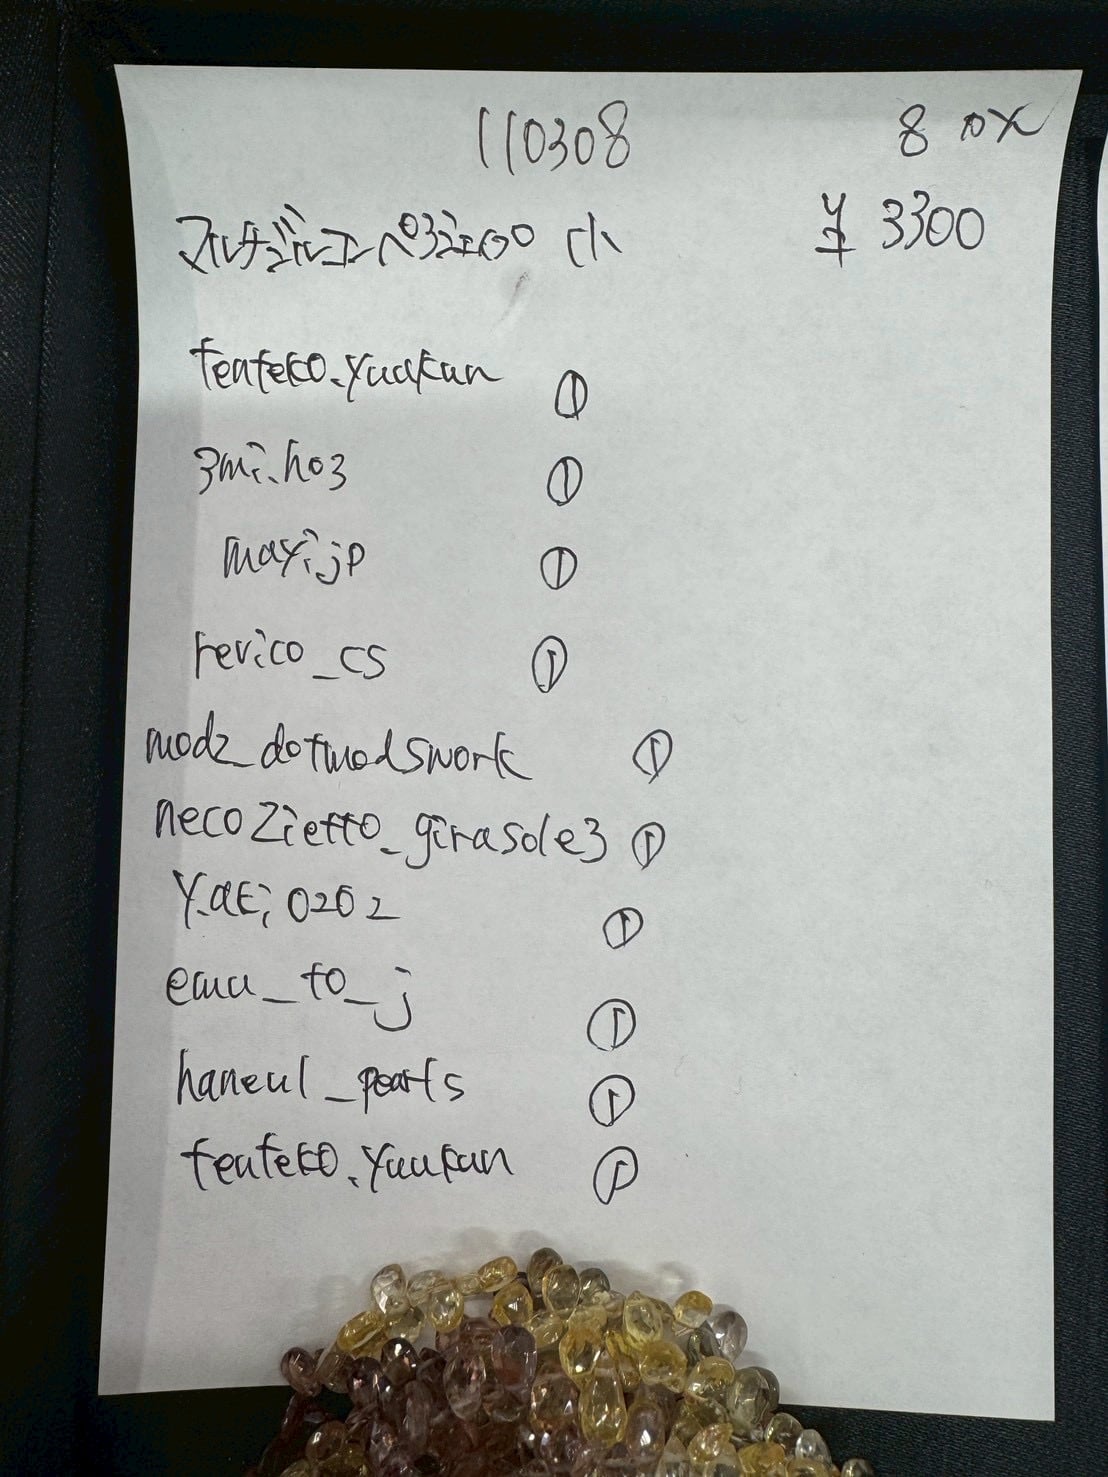 110308 8
¥ 3300
マルチジルコンペ 小
teateko.yuukun ①
3mi.ho3 ①
mayi.jp ①
revico_cs ①
modz_dotmodswork ①
necozietto_girasole3 ①
①
emu_to_j ①
haneul_pearls ①
teateko.yuukun ①